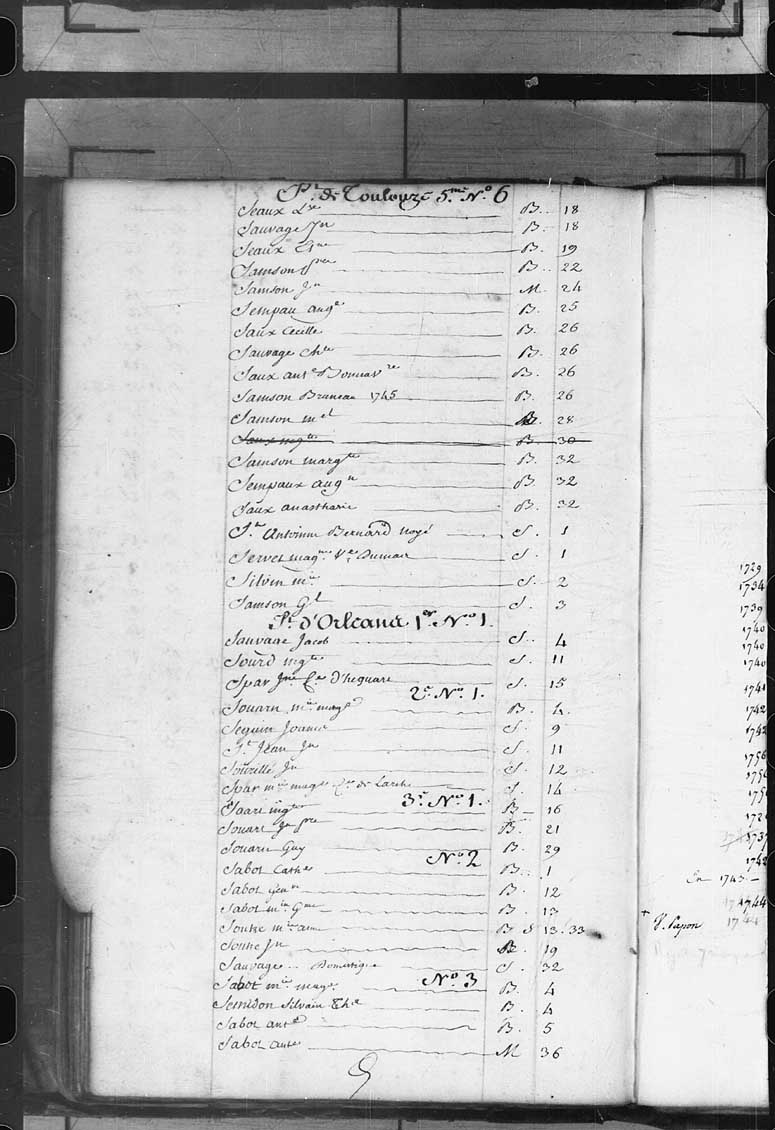 Pt. de Toulouze 5.me N.o 6
Seaux B. 18
Sauvage Jn B. 18
Seaux B. 19
Samson B. 22
Samson Jn M. 24
Sempau aug.e B. 25
Saux Cecille B. 26
Sauvage Ch.te B. 26
Saux ant.e Bonnav.re B. 26
Samson Bruneau 1745 B. 26
Samson m.el B. 28
Saux mg.te B. 30
Samson marg.te B. 32
Sempaux aug.n B. 32
Saux anasthasie B. 32
S.t Antoinne Bernard noyé S. 1
Servet mag.ne V.e Dumas S. 1
Silvin m.ie S. 2
Samson G.l S. 3
Pt. d'Orleans 1er. No 1.
Sauvage Jacob S. 4
Sourd mg.te S. 11
Spar Jne d'hequare S. 15
2e. No. 1.
Souarn m.ie mag.d B. 4.
Seguin Joannis S. 9
S.t Jean Jn S. 11
Sourille Jn S. 12
Spar m.ie mag.ne de Larche S. 14
3e. No 1.
mg.te B. 16
Souart Jn B. 21
Souart Guy B. 29
No. 2
Sabot Cath.e B. 1
Sabot B. 12
Sabot m.ie G.me B. 13
m.ie anne B S 13. 33
Jn B. 19
Sauvage Domestique S. 32
No. 3
Sabot m.ie mag.e B. 4
Semidon Silvain B. 4
Sabot ant.e B. 5
Sabot ant.e M 36
1729
1734
1739
1740
1740
1740
1741
1742
1742
1756
1737
1742
En 1743
1744
+ V. Papon 1744